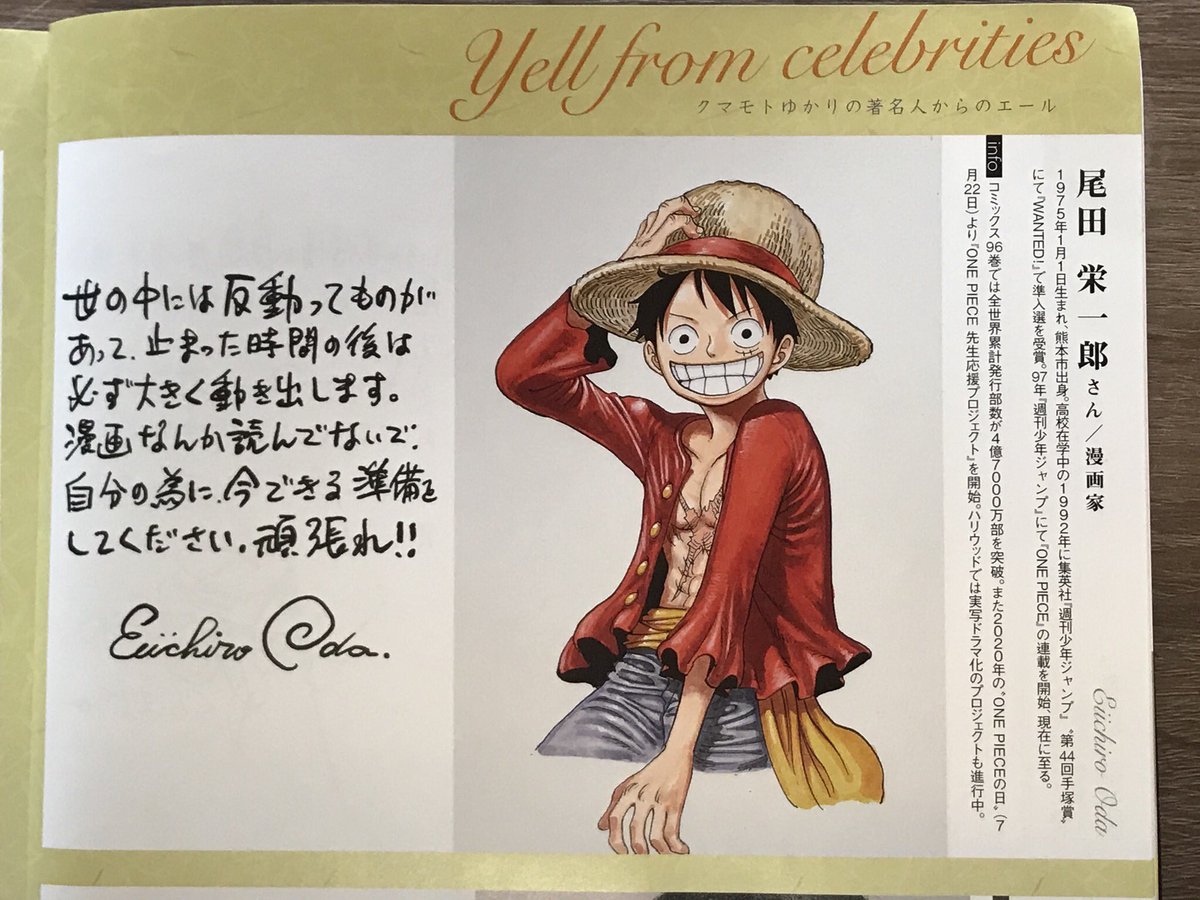 Yell from celebrities
クマモトゆかりの著名人からのエール
尾田 栄一郎さん／漫画家
1975年1月1日生まれ、熊本市出身。高校在学中の1992年に集英社『週刊少年ジャンプ』“第44回手塚賞”
にて『WANTED!』で準入選を受賞。97年『週刊少年ジャンプ』にて『ONE PIECE』の連載を開始、現在に至る。
info コミックス96巻では全世界累計発行部数が4億7000万部を突破。また2020年の“ONE PIECEの日”(7
月22日)より『ONE PIECE 先生応援プロジェクト』を開始。ハリウッドでは実写ドラマ化のプロジェクトも進行中。
Eiichiro Oda
世の中には反動ってものが
あって、止まった時間の後は
必ず大きく動き出します。
漫画なんか読んでないで、
自分の為に、今できる準備を
してください。頑張れ!!
Eiichiro Oda.